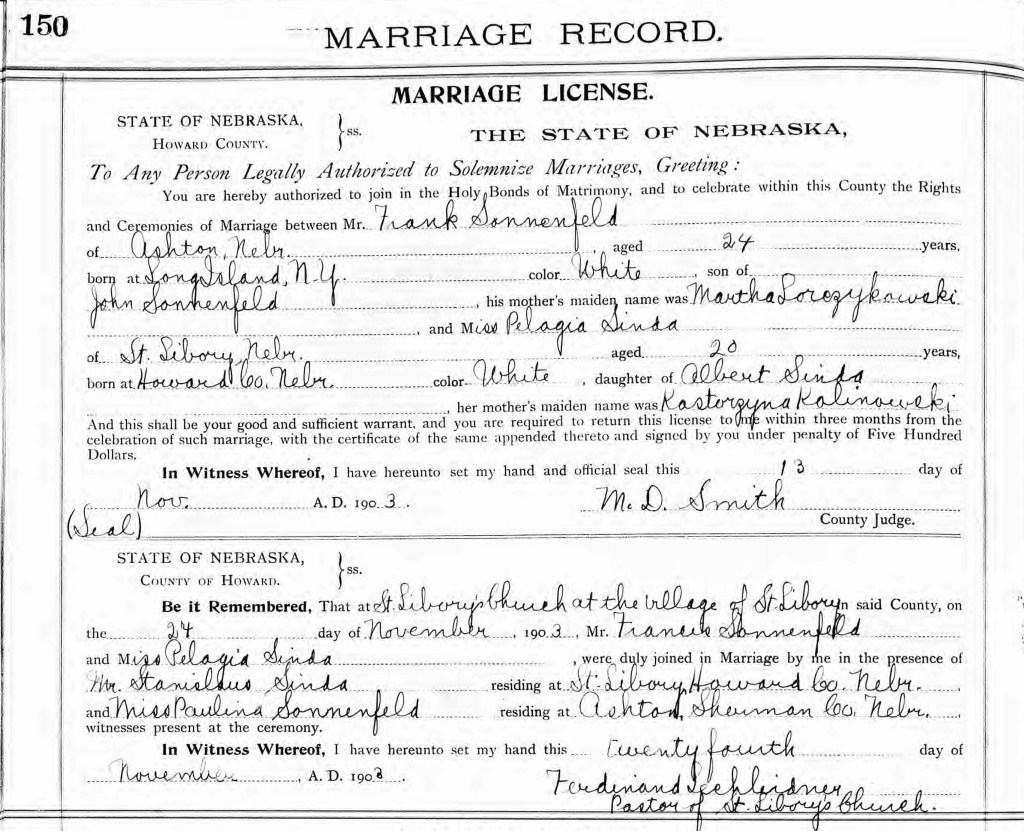 150
MARRIAGE RECORD.
MARRIAGE LICENSE.
STATE OF NEBRASKA,
HOWARD COUNTY.
} ss.
THE STATE OF NEBRASKA,
To Any Person Legally Authorized to Solemnize Marriages, Greeting:
You are hereby authorized to join in the Holy Bonds of Matrimony, and to celebrate within this County the Rights
and Ceremonies of Marriage between Mr. Frank Sonnenfeld
of Ashton, Nebr. , aged 24 years,
born at Long Island, N.Y. color White , son of
John Sonnenfeld , his mother's maiden name was Martha Lorczykowski
, and Miss Pelagia Sinda
of St. Libory, Nebr. aged 20 years,
born at Howard Co. Nebr. color White , daughter of Albert Sinda
, her mother's maiden name was Kastorzyna Kalinowski
And this shall be your good and sufficient warrant, and you are required to return this license to me within three months from the
celebration of such marriage, with the certificate of the same appended thereto and signed by you under penalty of Five Hundred
Dollars.
In Witness Whereof, I have hereunto set my hand and official seal this 13 day of
Nov. A. D. 1903. M. D. Smith
(Seal) County Judge.
STATE OF NEBRASKA,
COUNTY OF HOWARD.
} ss.
Be it Remembered, That at St. Libory's Church at the village of St. Libory in said County, on
the 24 day of November , 1903, Mr. Francis Sonnenfeld
and Miss Pelagia Sinda , were duly joined in Marriage by me in the presence of
Mr. Stanislaus Sinda residing at St. Libory, Howard Co. Nebr.
and Miss Paulina Sonnenfeld residing at Ashton, Sherman Co. Nebr.
witnesses present at the ceremony.
In Witness Whereof, I have hereunto set my hand this twenty fourth day of
November , A. D. 1903. Ferdinand Lechleidner
Pastor of St. Libory's Church.